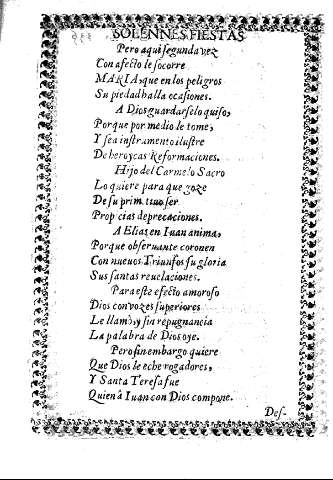 SOLENNES FIESTAS
Pero aqui segunda vez
Con afecto le socorre
MARIA, que en los peligros
Su piedad halla ocasiones.
A Dios guardarselo quiso,
Porque por medio le tome,
Y sea instrumento ilustre
De heroycas Reformaciones.
Hijo del Carmelo Sacro
Lo quiere para que goze
De su primitiuo ser
Propicias deprecaciones.
A Elias en Iuan anima,
Porque obseruante coronen
Con nueuos Triunfos su gloria
Sus santas reuelaciones.
Para este efecto amoroso
Dios con vozes superiores
Le llamò, y sin repugnancia
La palabra de Dios oye.
Pero sin embargo quiere
Que Dios le eche rogadores,
Y Santa Teresa fue
Quien à Iuan con Dios compone.
Des-